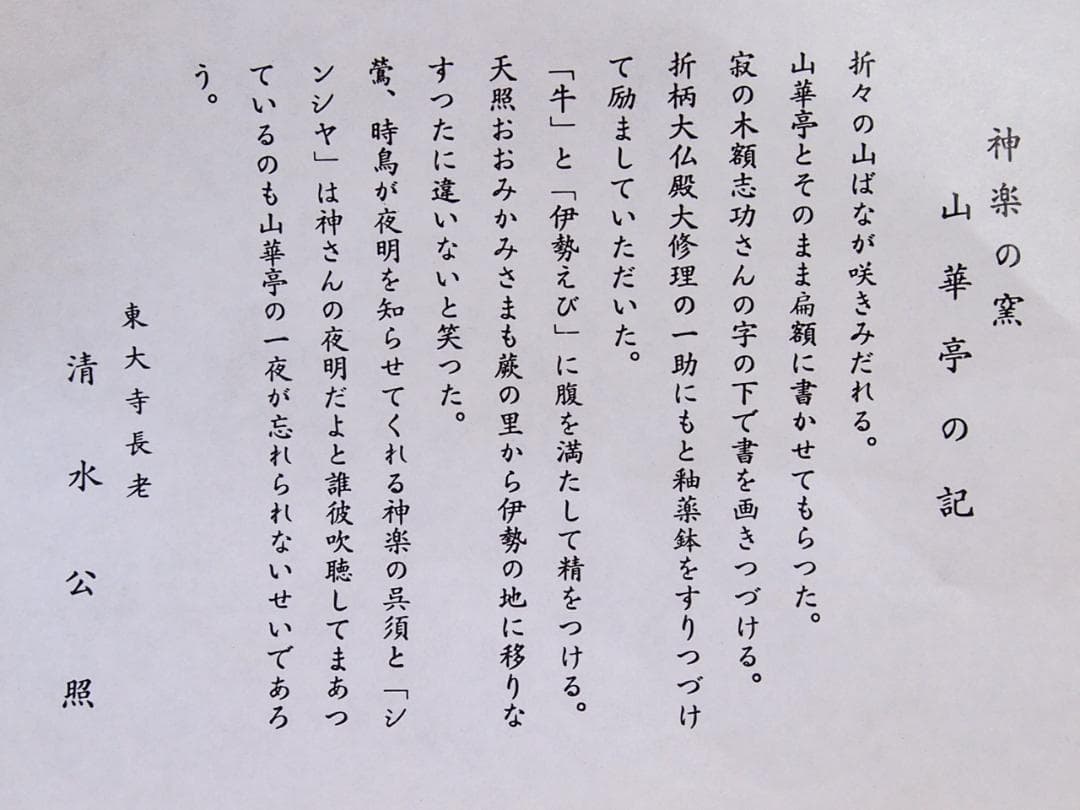 神楽の窯
山華亭の記
折々の山ばなが咲きみだれる。
山華亭とそのまま扁額に書かせてもらつた。
寂の木額志功さんの字の下で書を画きつづける。
折柄大仏殿大修理の一助にもと釉薬鉢をすりつづけ
て励ましていただいた。
「牛」と「伊勢えび」に腹を満たして精をつける。
天照おおみかみさまも蕨の里から伊勢の地に移りな
すつたに違いないと笑つた。
鶯、時鳥が夜明を知らせてくれる神楽の呉須と「シ
ンシヤ」は神さんの夜明だよと誰彼吹聴してまあつ
ているのも山華亭の一夜が忘れられないせいであろ
う。
東大寺長老
清水公照